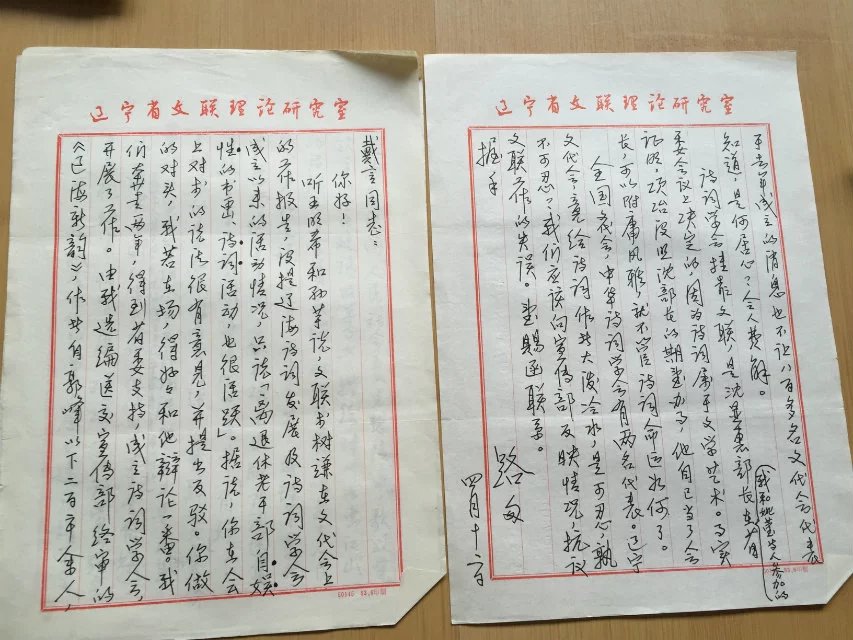 辽宁省文联理论研究室
戴言同志：
你好！
听王明希和孙说，文联树谦在文代会上
的工作报告，没提辽海诗词发展及诗词学会
成立以来的活动情况，只说「离退休老干部自娱
性的书画、诗词活动，也很活跃」。据说，你在会
上对的说法很有意见，并提出反驳。你做
的对头，我若在场，得好好和他辩论一番。我
们奔走两年，得到省委支持，成立诗词学会，
开展了工作。由我选编送交宣传部终审的
《辽海新韵》，作者自郭峰以下二百余人，
辽宁省文联理论研究室
于去年成立的消息也不让八百多名文代会代表
知道，是何居心？令人费解。
（我和等人参加的）
诗词学会挂靠文联，是沈显惠部长在省
委会议上决定的，因为诗词属于文学艺术。事实
证明，项冶没照沈部长的期望办事，他自己当了会
长，可以附庸风雅，就不管诗词命运如何了。
全国文代会，中华诗词学会有两名代表。辽宁
文代会，竟给诗词作者大泼冷水，是可忍孰
不可忍？我们应该向宣传部反映情况，抗议
文联工作的失误。望赐函联系。
握手
路
四月十二日